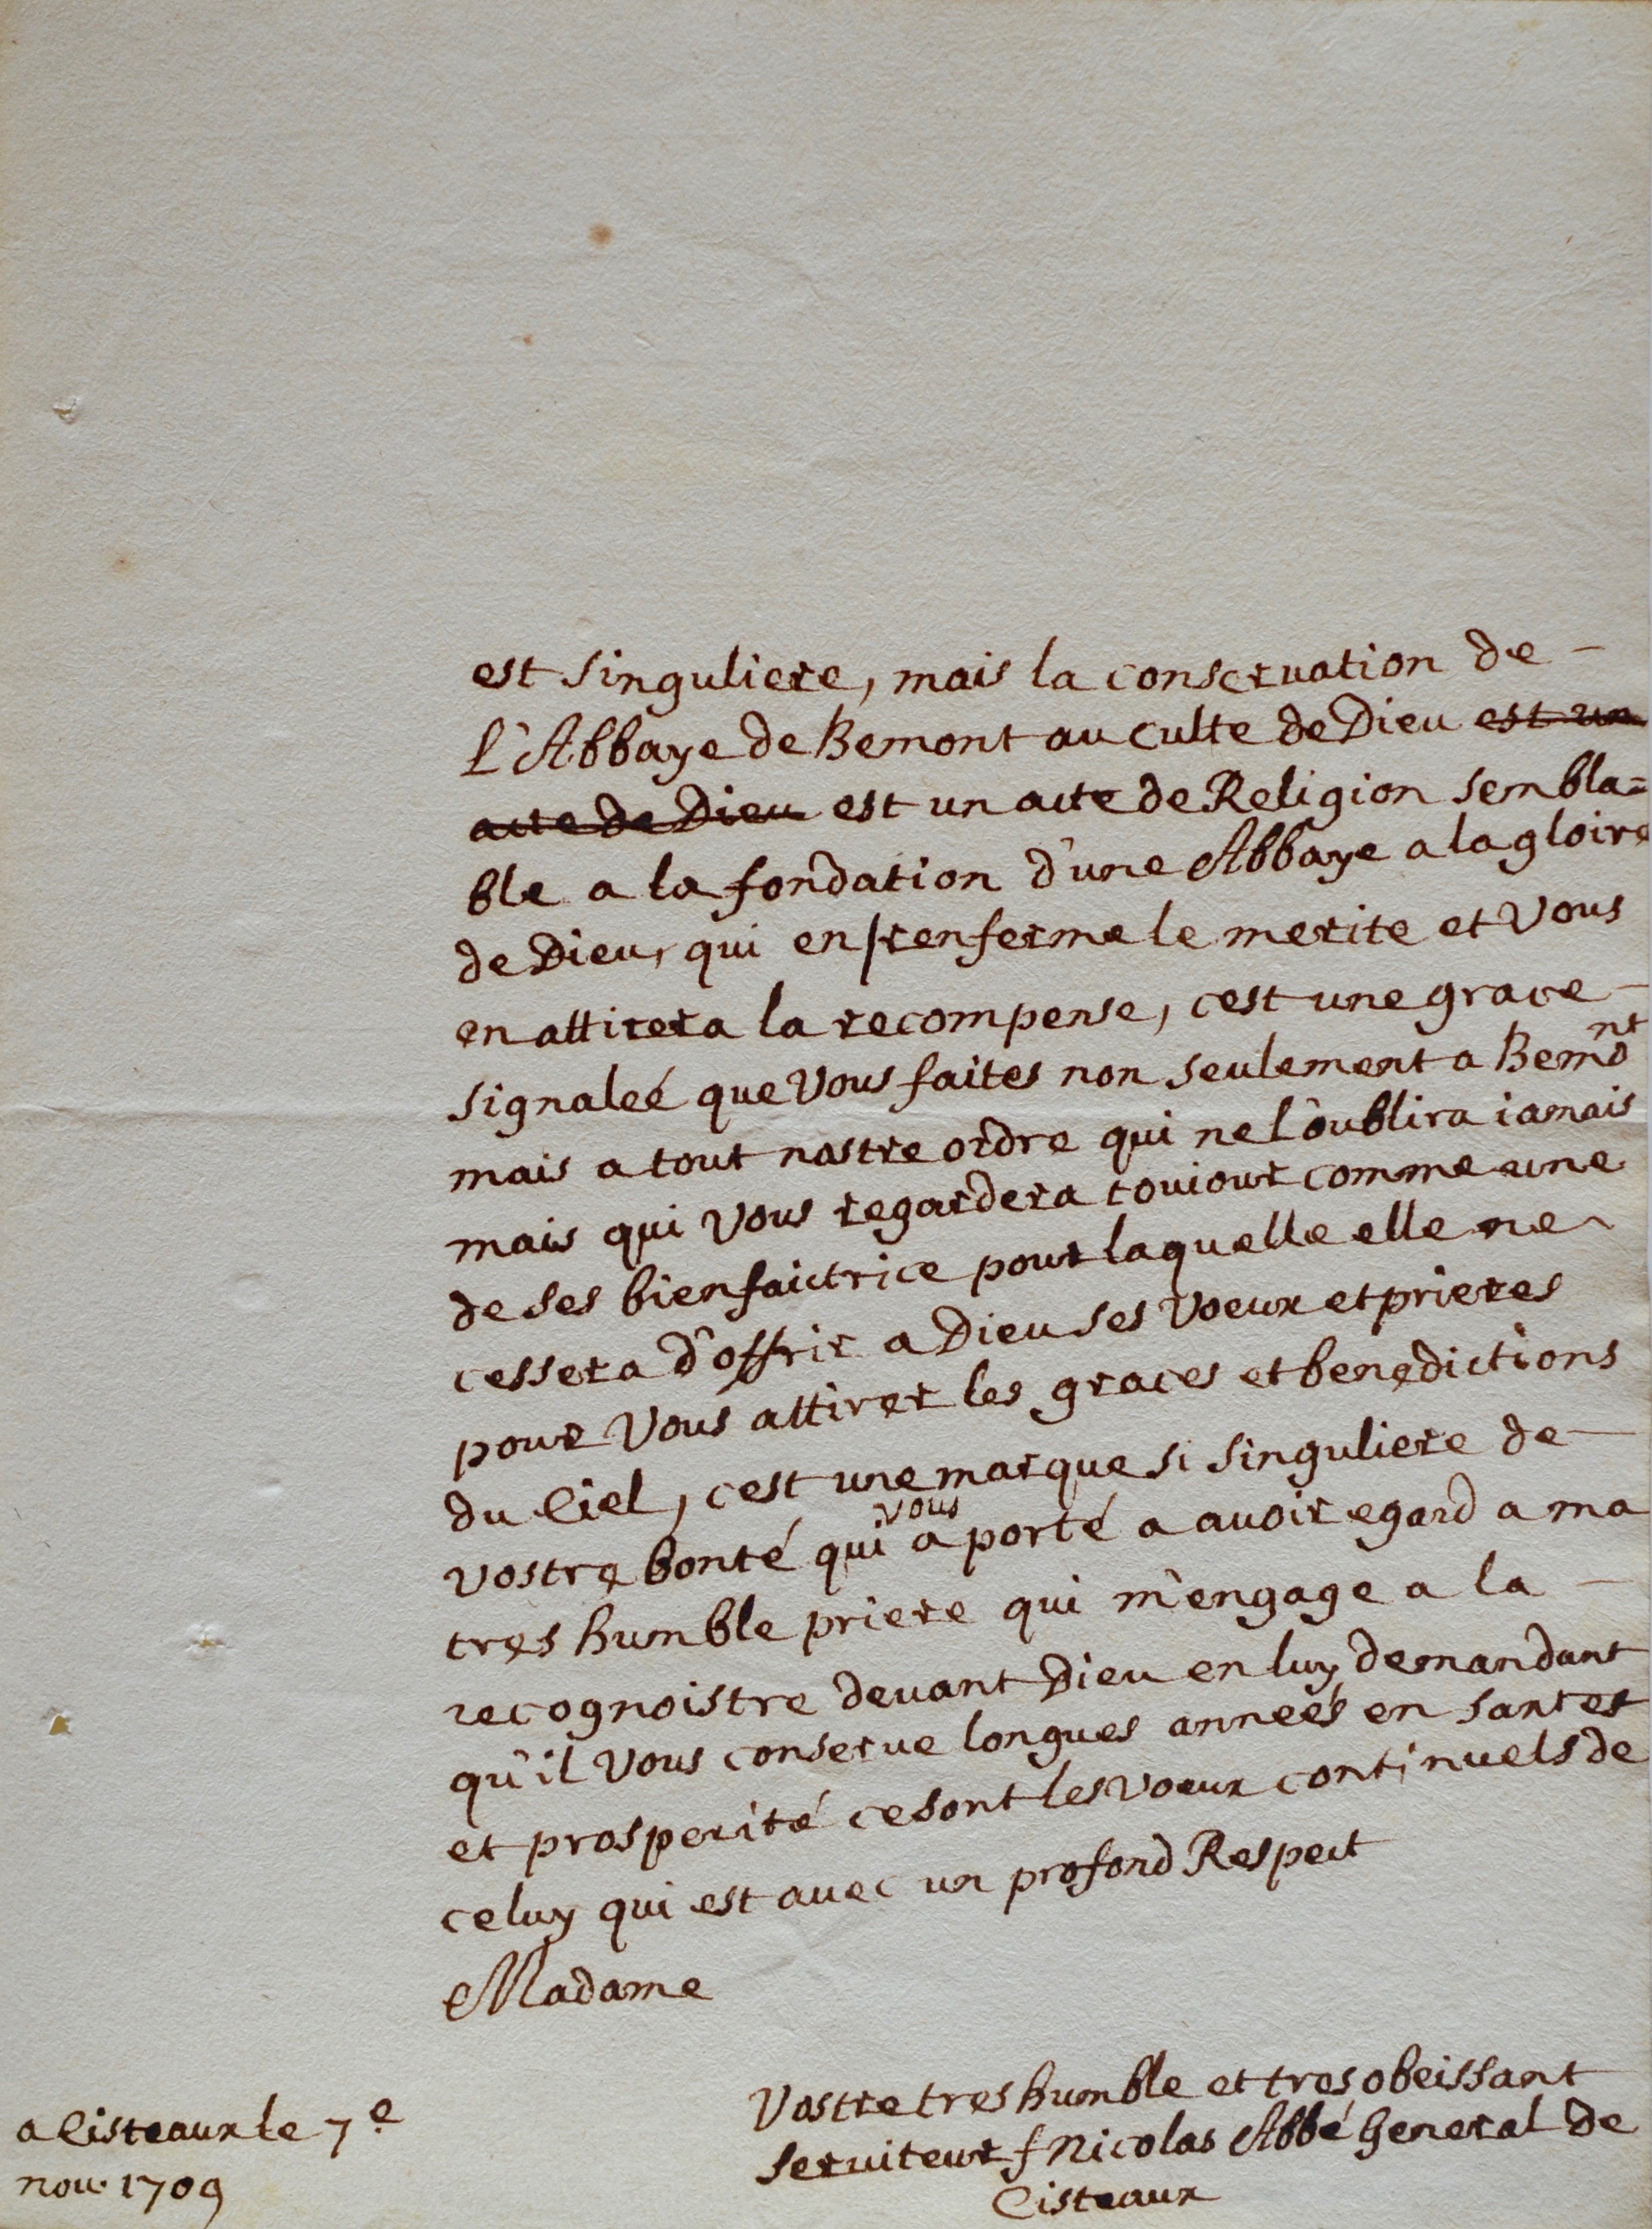 est singuliere, mais la conseruation de -
L'Abbaye de Bemont au culte de Dieu est un
acte de Dieu est un acte de Religion sembla=
ble a la fondation d'une Abbaye a la gloire
de Dieu, qui en renferme le merite et Vous
en attirera la recompense, c'est une grace -
signaleé que Vous faites non seulement a Bemont
mais a tout nostre ordre qui ne l'oublira iamais
mais qui Vous regardera touiour comme une
de ses bienfaictrice pour laquelle elle ne
cessera d'offrir a Dieu ses Voeux et prieres
pour Vous attirer les graces et benedictions
du Ciel, c'est une marque si singuliere de -
Vostre bonté qui vous a porté a auoir egard a ma
tres humble priere qui m'engage a la -
recognoistre deuant Dieu en luy demandant
qu'il Vous conserue longues anneés en santet
et prosperité ce sont les voeux continuels de
celuy qui est auec un profond Respect
Madame
Vostre tres humble et tres obeissant
seruiteur f Nicolas Abbé General de
Cisteaux
a Cisteaux le 7e
nou. 1709